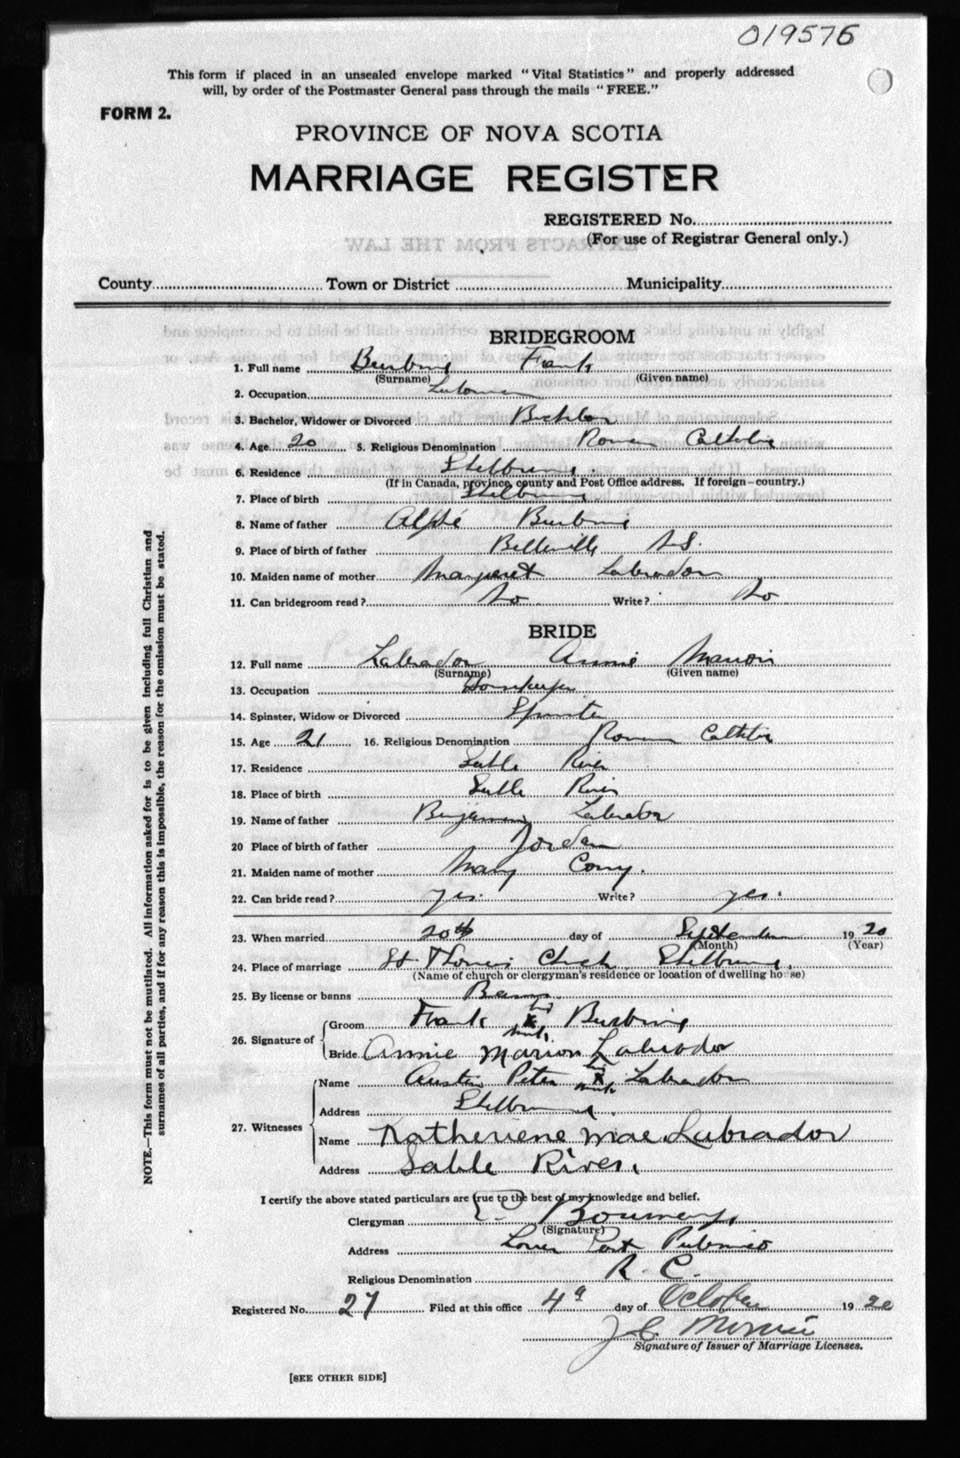 019576
This form if placed in an unsealed envelope marked "Vital Statistics" and properly addressed
will, by order of the Postmaster General pass through the mails "FREE."
FORM 2.
PROVINCE OF NOVA SCOTIA
MARRIAGE REGISTER
REGISTERED No.
(For use of Registrar General only.)
County Town or District Municipality
BRIDEGROOM
1. Full name Frank
(Surname) (Given name)
2. Occupation
3. Bachelor, Widower or Divorced Bachelor
4. Age 20 5. Religious Denomination Roman Catholic
6. Residence Shelburne
(If in Canada, province, county and Post Office address. If foreign—country.)
7. Place of birth Shelburne
8. Name of father Alphé
9. Place of birth of father Belleville N.S.
10. Maiden name of mother Margaret Labrador
11. Can bridegroom read? No Write? No
BRIDE
12. Full name Labrador Annie Marion
(Surname) (Given name)
13. Occupation Housekeeper
14. Spinster, Widow or Divorced Spinster
15. Age 21 16. Religious Denomination Roman Catholic
17. Residence Sable River
18. Place of birth Sable River
19. Name of father Benjamin Labrador
20 Place of birth of father Jordan
21. Maiden name of mother Mary
22. Can bride read? yes. Write? yes.
23. When married 20th day of September 1920
(Month) (Year)
24. Place of marriage St. Thomas Church Shelburne.
(Name of church or clergyman's residence or location of dwelling house)
25. By license or banns Banns.
his
26. Signature of Groom Frank X
mark
Bride Annie Marion Labrador
his
27. Witnesses Name Peter X Labrador
mark
Address Shelburne
Name Katheriene Mae Labrador
Address Sable River.
I certify the above stated particulars are true to the best of my knowledge and belief.
Clergyman
(Signature)
Address Lower East Pubnico
Religious Denomination R. C.
Registered No. 27 Filed at this office 4th day of October 1920
Signature of Issuer of Marriage Licenses.
[SEE OTHER SIDE]
NOTE.—This form must not be mutilated. All information asked for is to be given including full Christian and
surnames of all parties, and if for any reason this is impossible, the reason for the omission must be stated.